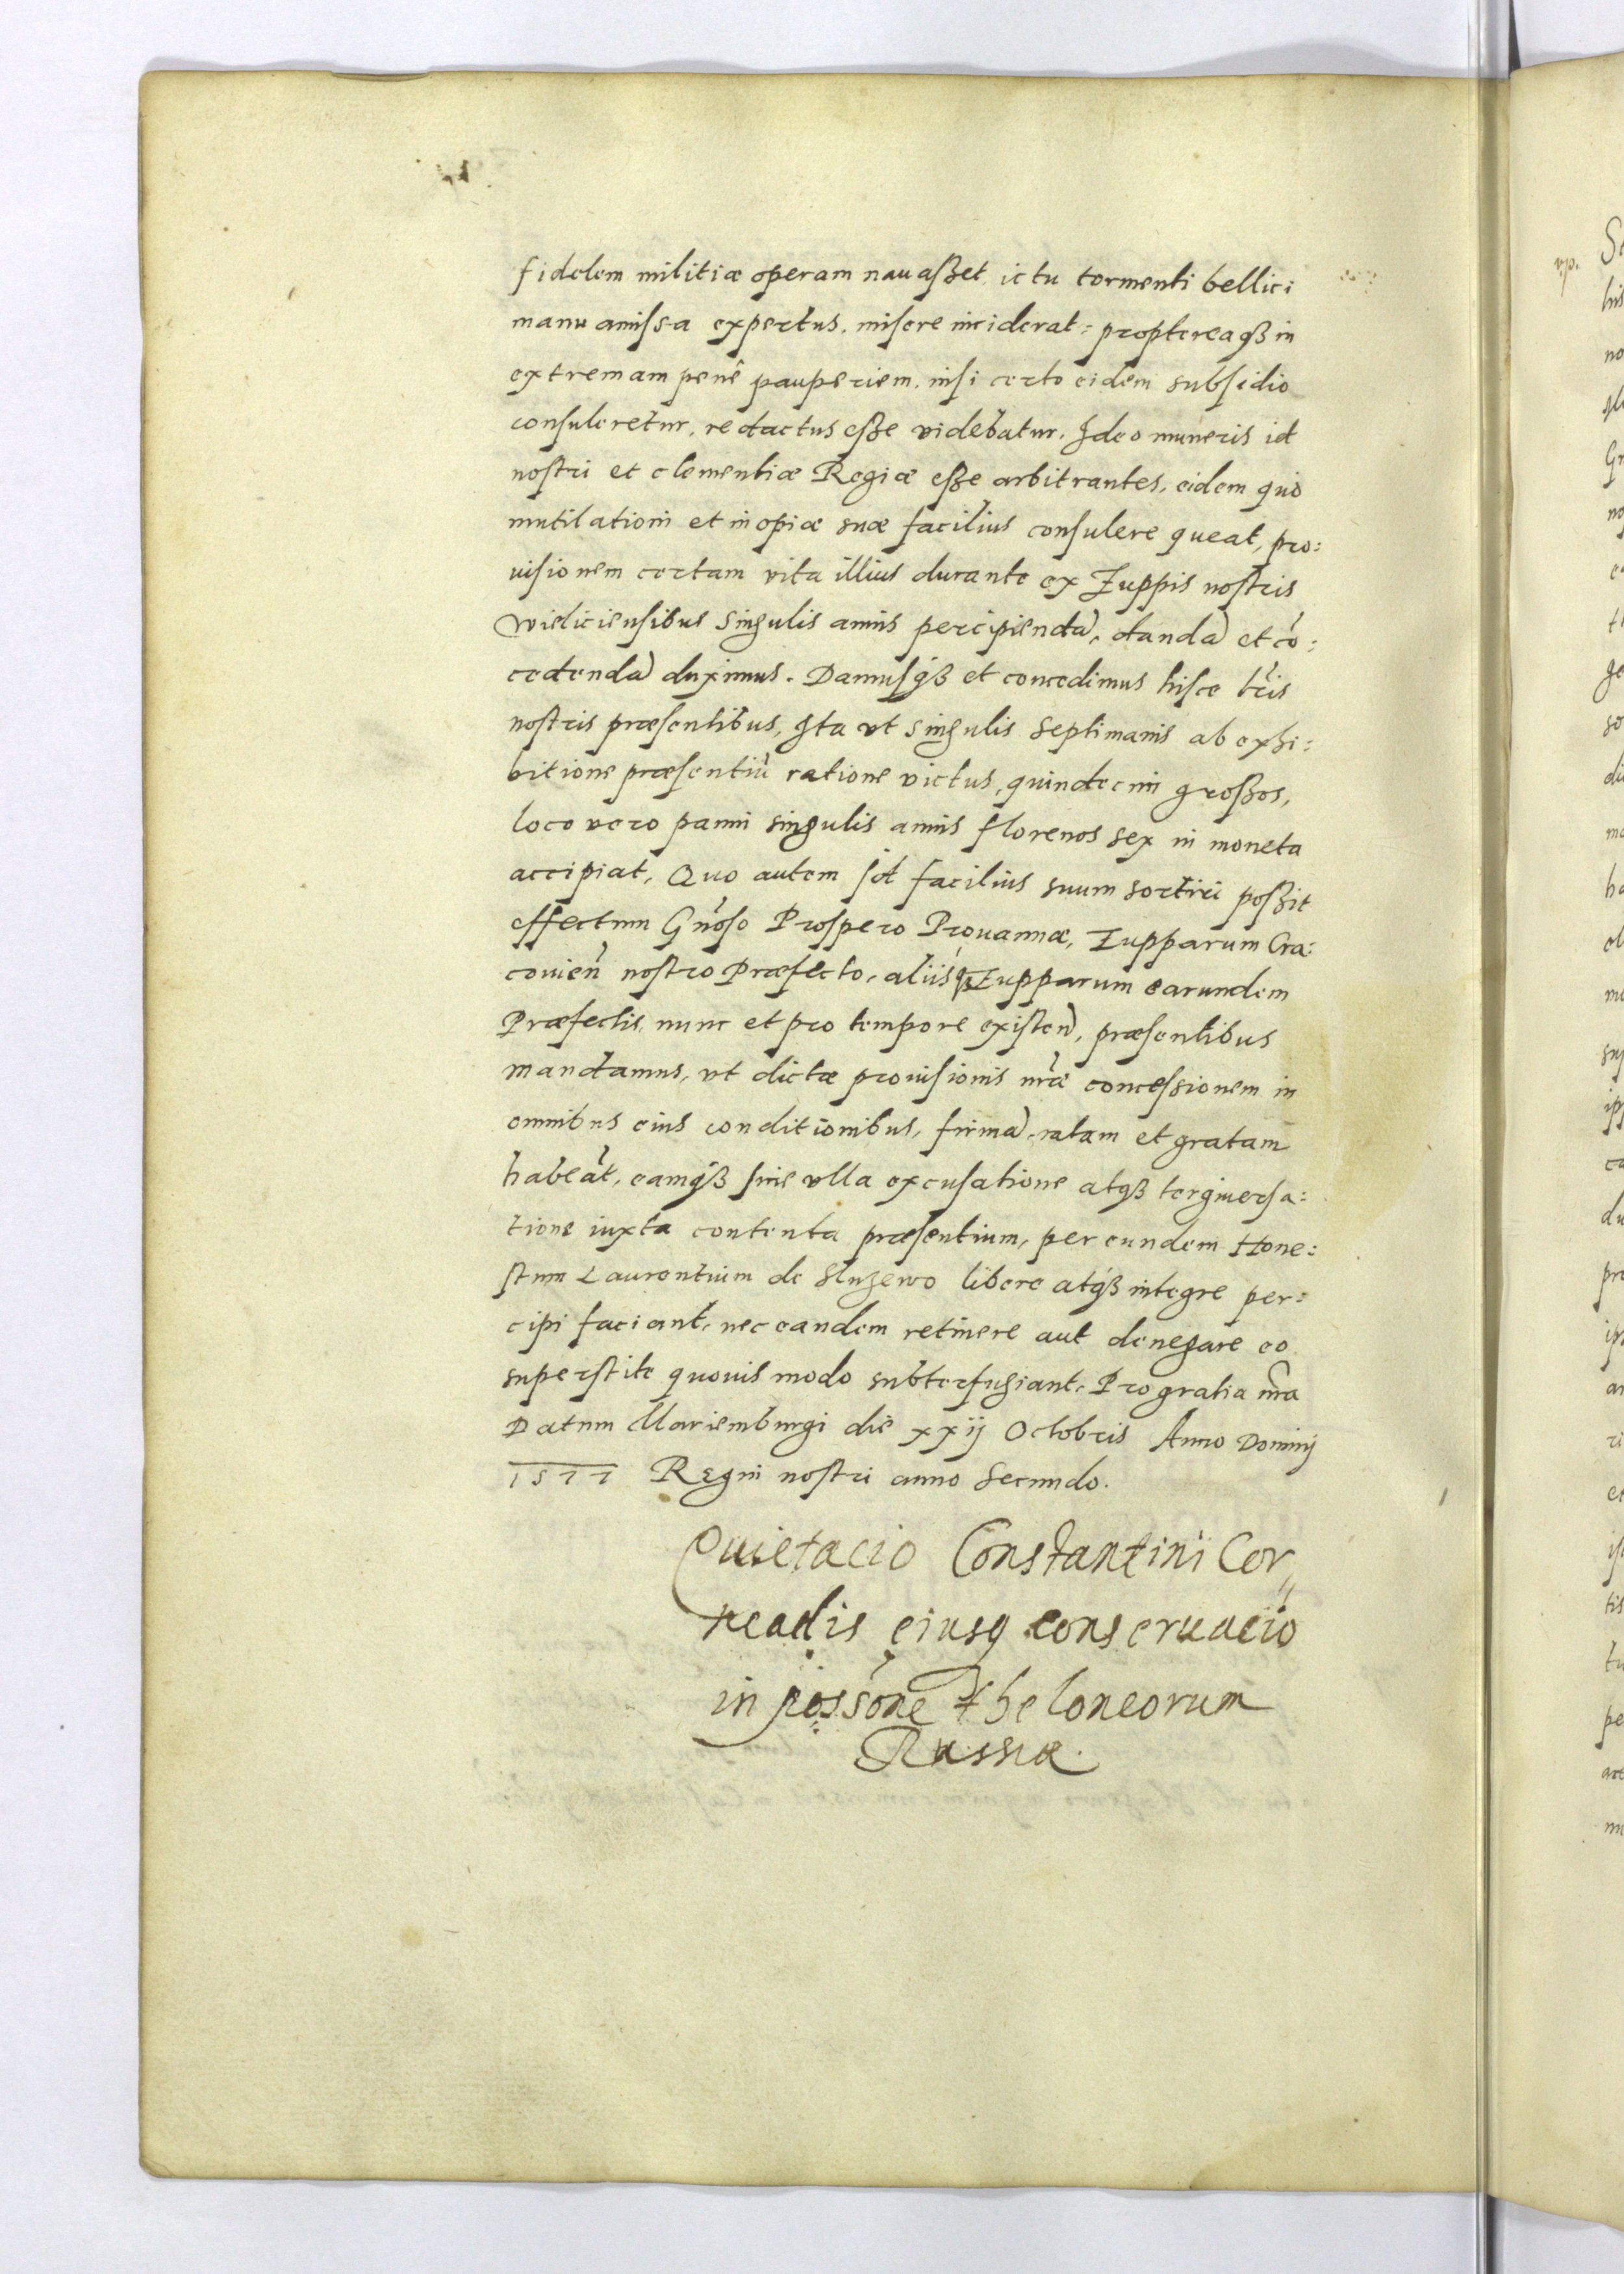 fidelem militiæ operam nauaßet, ictu tormenti bellici
manu amissa expertus, misere inciderat: proptereaqß in
extremam penè pauperiem, nisi certo eidem subsidio
consuleretur, redactus eße videbatur. Ideo muneris id
nostri et clementiæ Regiæ eße arbitrantes, eidem quò
mutilationi et inopiæ suæ facilius consulere queat, pro:
uisionem certam vita illius durante ex Zuppis nostris
Wieliciensibus singulis annis percipiendã, dandã et cõ:
cedendã duximus. Damusqß et concedimus hisce lr̃is
nostris præsentibus, Ita vt singulis septimanis ab exhi:
bitione præsentiũ ratione victus, quindecim großos,
loco vero panni singulis annis florenos sex in moneta
accipiat, Quo autem id facilius suum sortiri poßit
effectum Gñoso Prospero Prouannæ, Zupparum Cra:
couieñ nostro Præfecto, aliisqß Zupparum earundem
Præfectis, nunc et pro tempore existeñ, præsentibus
mandamus, vt dictæ prouisionis nr̃æ concessionem in
omnibus eius conditionibus, firmã, ratam et gratam
habeãt, eamqß sine vlla excusatione atqß tergiuersa:
tione iuxta contenta præsentium, per eundem Hone:
stum Laurentium de Sluzewo libere atqß integre per:
cipi faciant, nec eandem retinere aut denegare eo
superstite quouis modo subterfugiant, Pro gratia nr̃a
Datum Mariemburgi die xxij Octobris Anno Dominj
1577 Regni nostri anno Secundo.
Quietacio Constantini Cor„
neadis eiusq conseruacio
in poss̃one theloneorum
Russiæ.